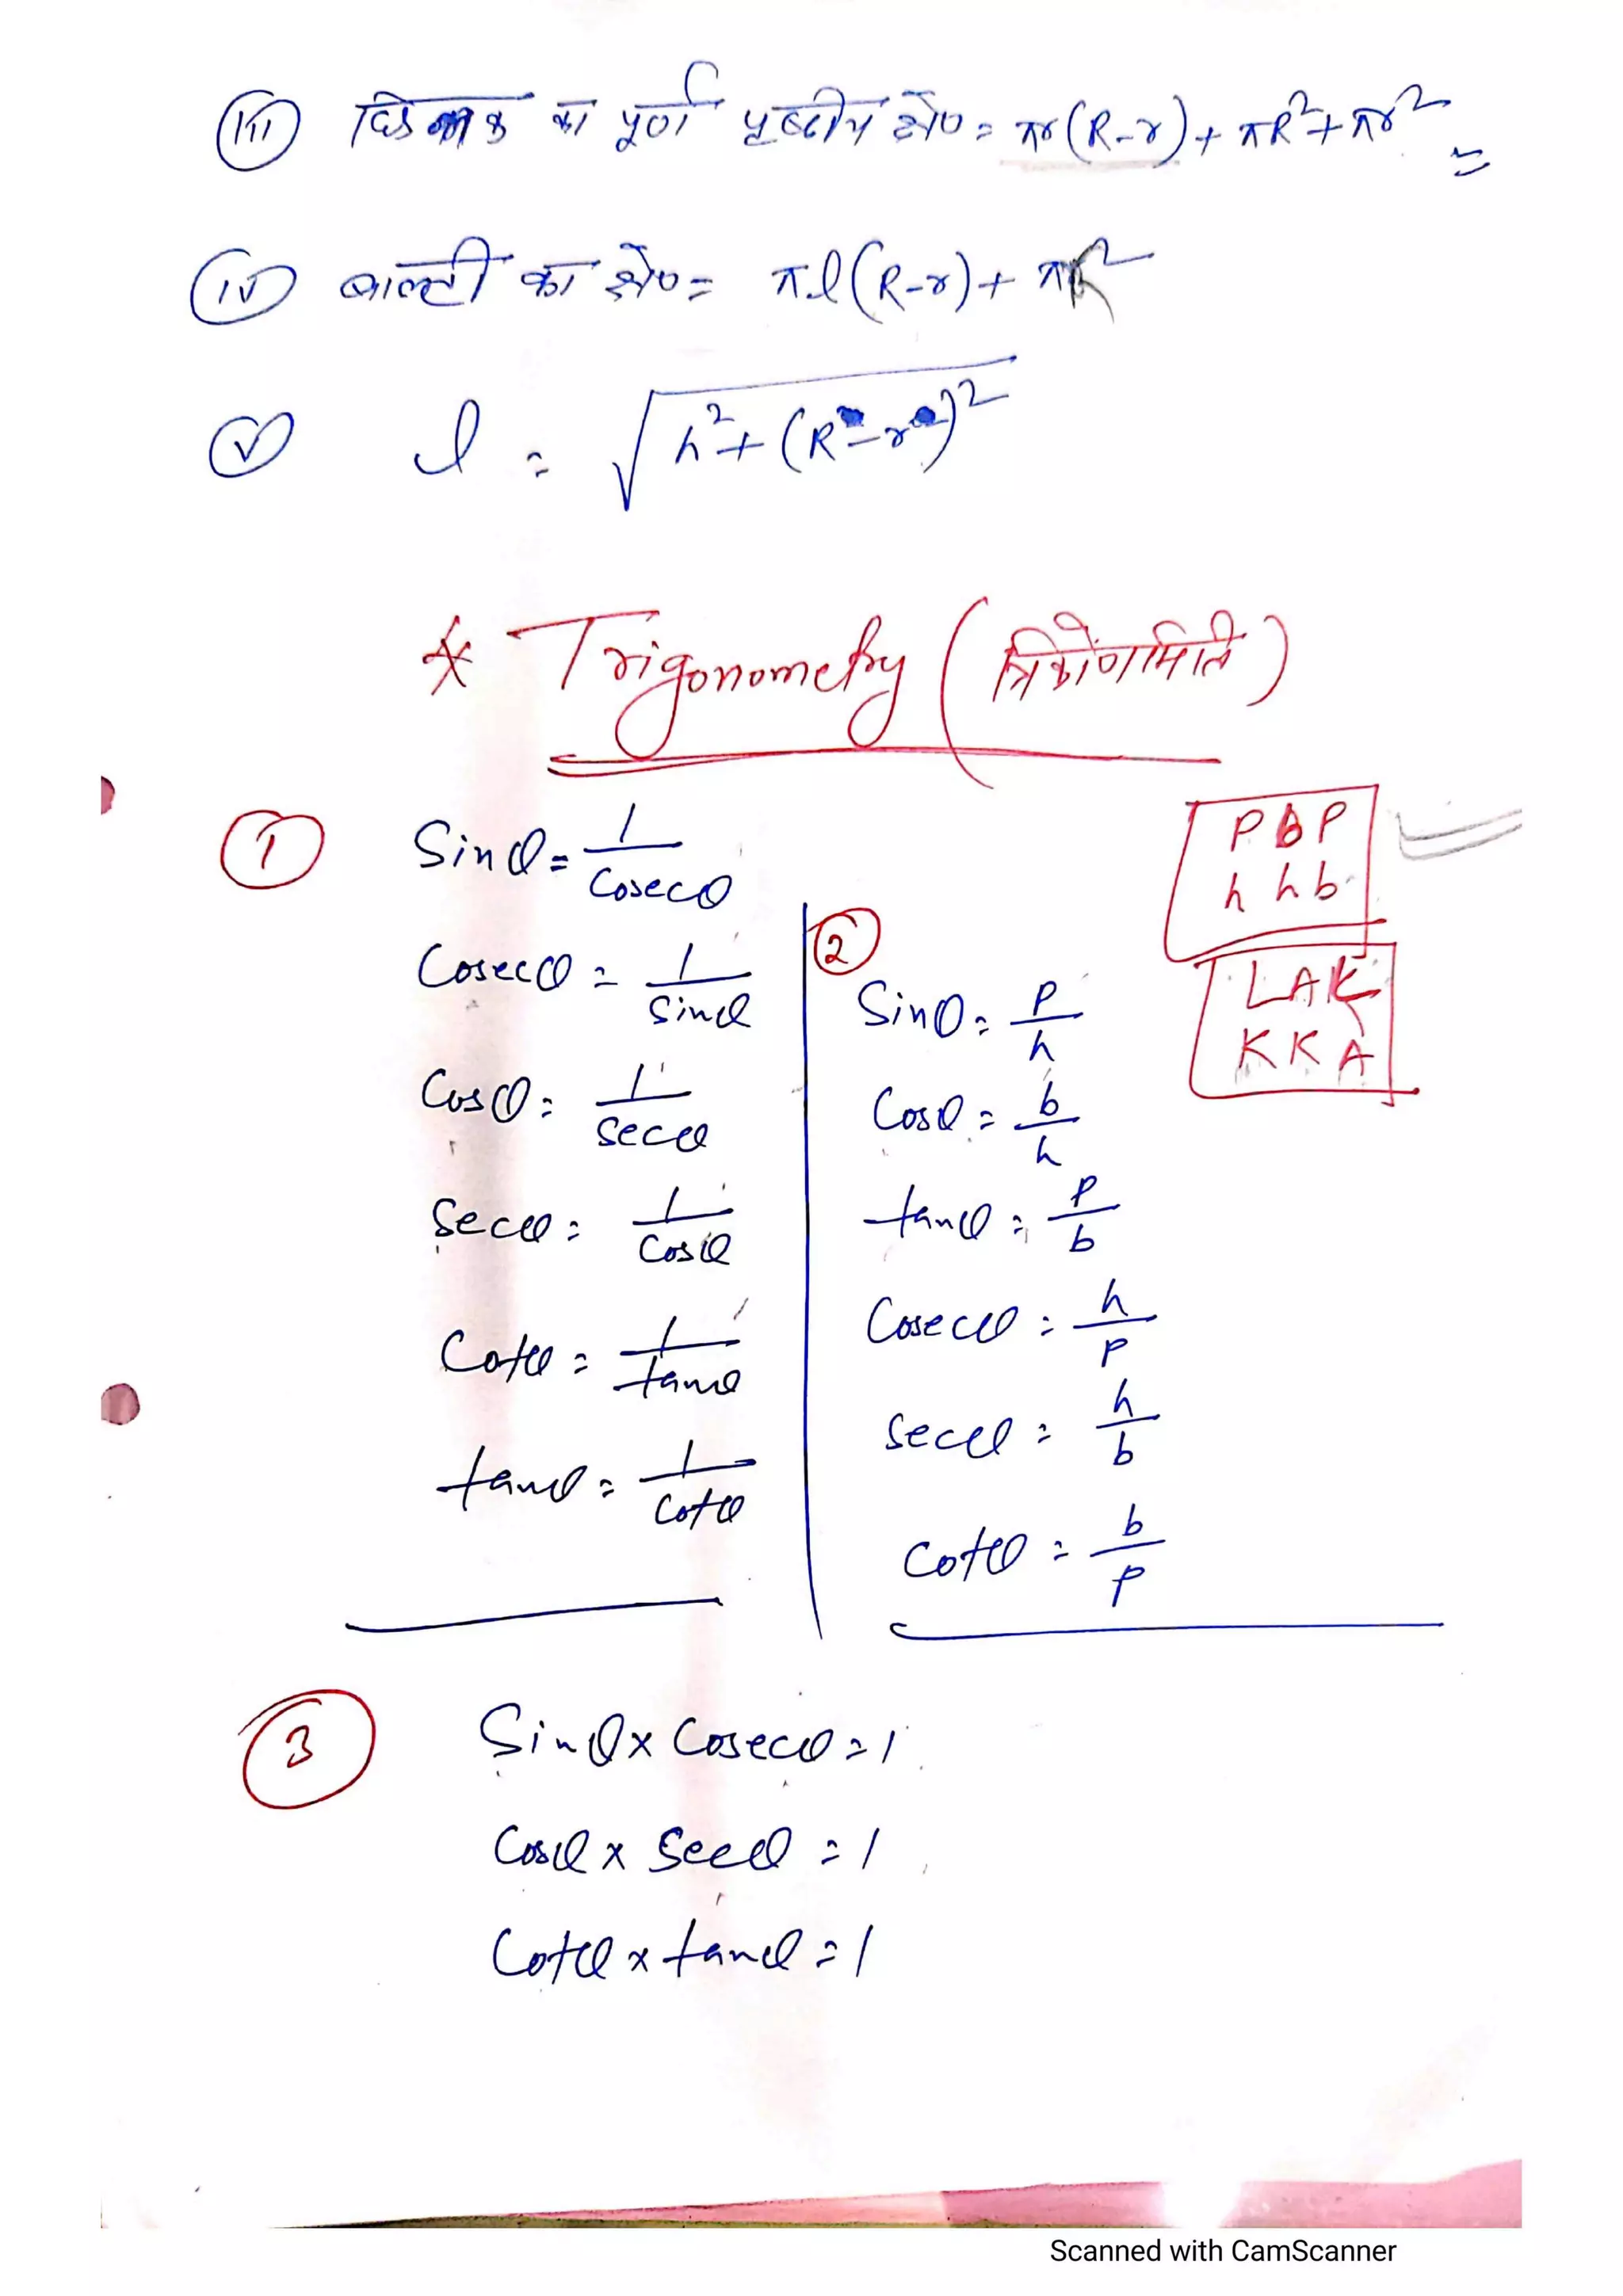 (iii) छिन्नक का पूर्ण पृष्ठीय क्षे० = πr(R-r) + πR² + πr²
(iv) बाल्टी का क्षे० = πl(R-r) + πR²
(v) l = √h² + (R - r)²
* Trigonometry (त्रिकोणमिति)
(1) Sinθ = 1/Cosecθ
Cosecθ = 1/Sinθ
Cosθ = 1/Secθ
Secθ = 1/Cosθ
Cotθ = 1/tanθ
tanθ = 1/Cotθ
P B P
h h b
LAK
KKA
(2)
Sinθ = P/h
Cosθ = b/h
tanθ = P/b
Cosecθ = h/P
Secθ = h/b
Cotθ = b/P
(3) Sinθ x Cosecθ = 1
Cosθ x Secθ = 1
Cotθ x tanθ = 1
Scanned with CamScanner